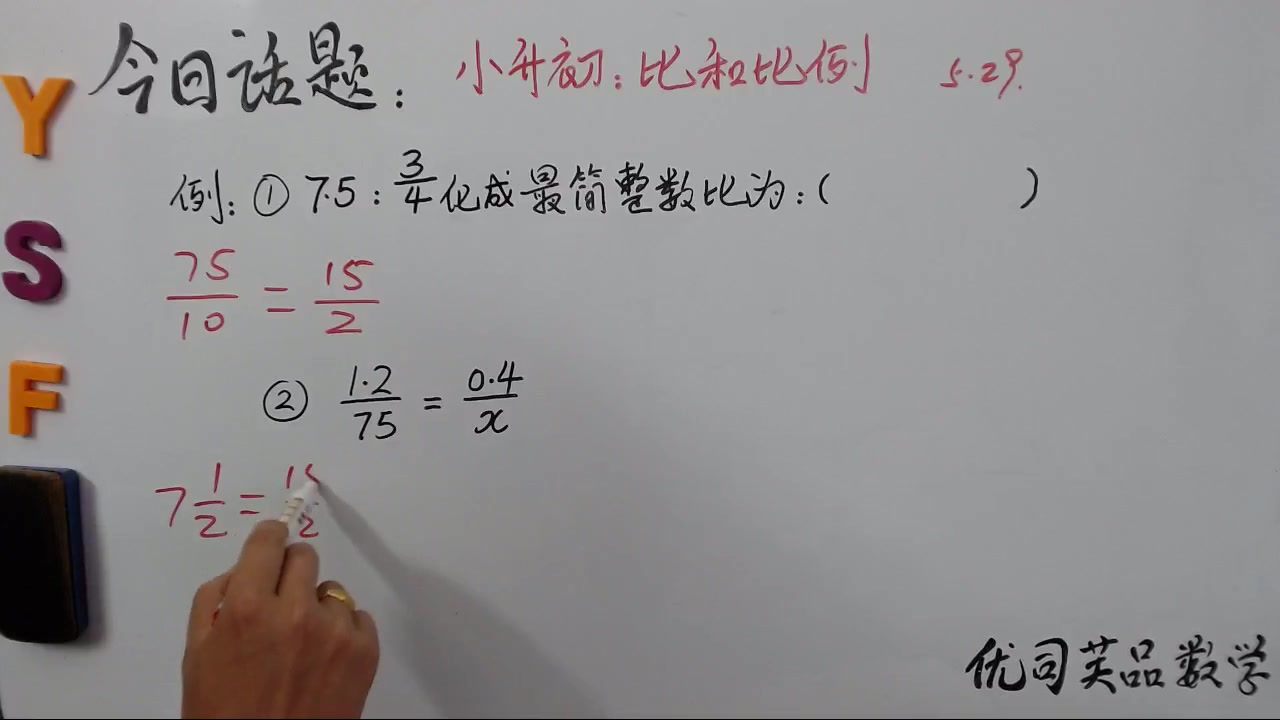 今日话题: 小升初:比和比例 5.29.
例:① 7.5:3/4化成最简整数比为:( )
75/10 = 15/2
② 1.2/75 = 0.4/x
7 1/2 = 15/2
Y
S
F
优司英品数学